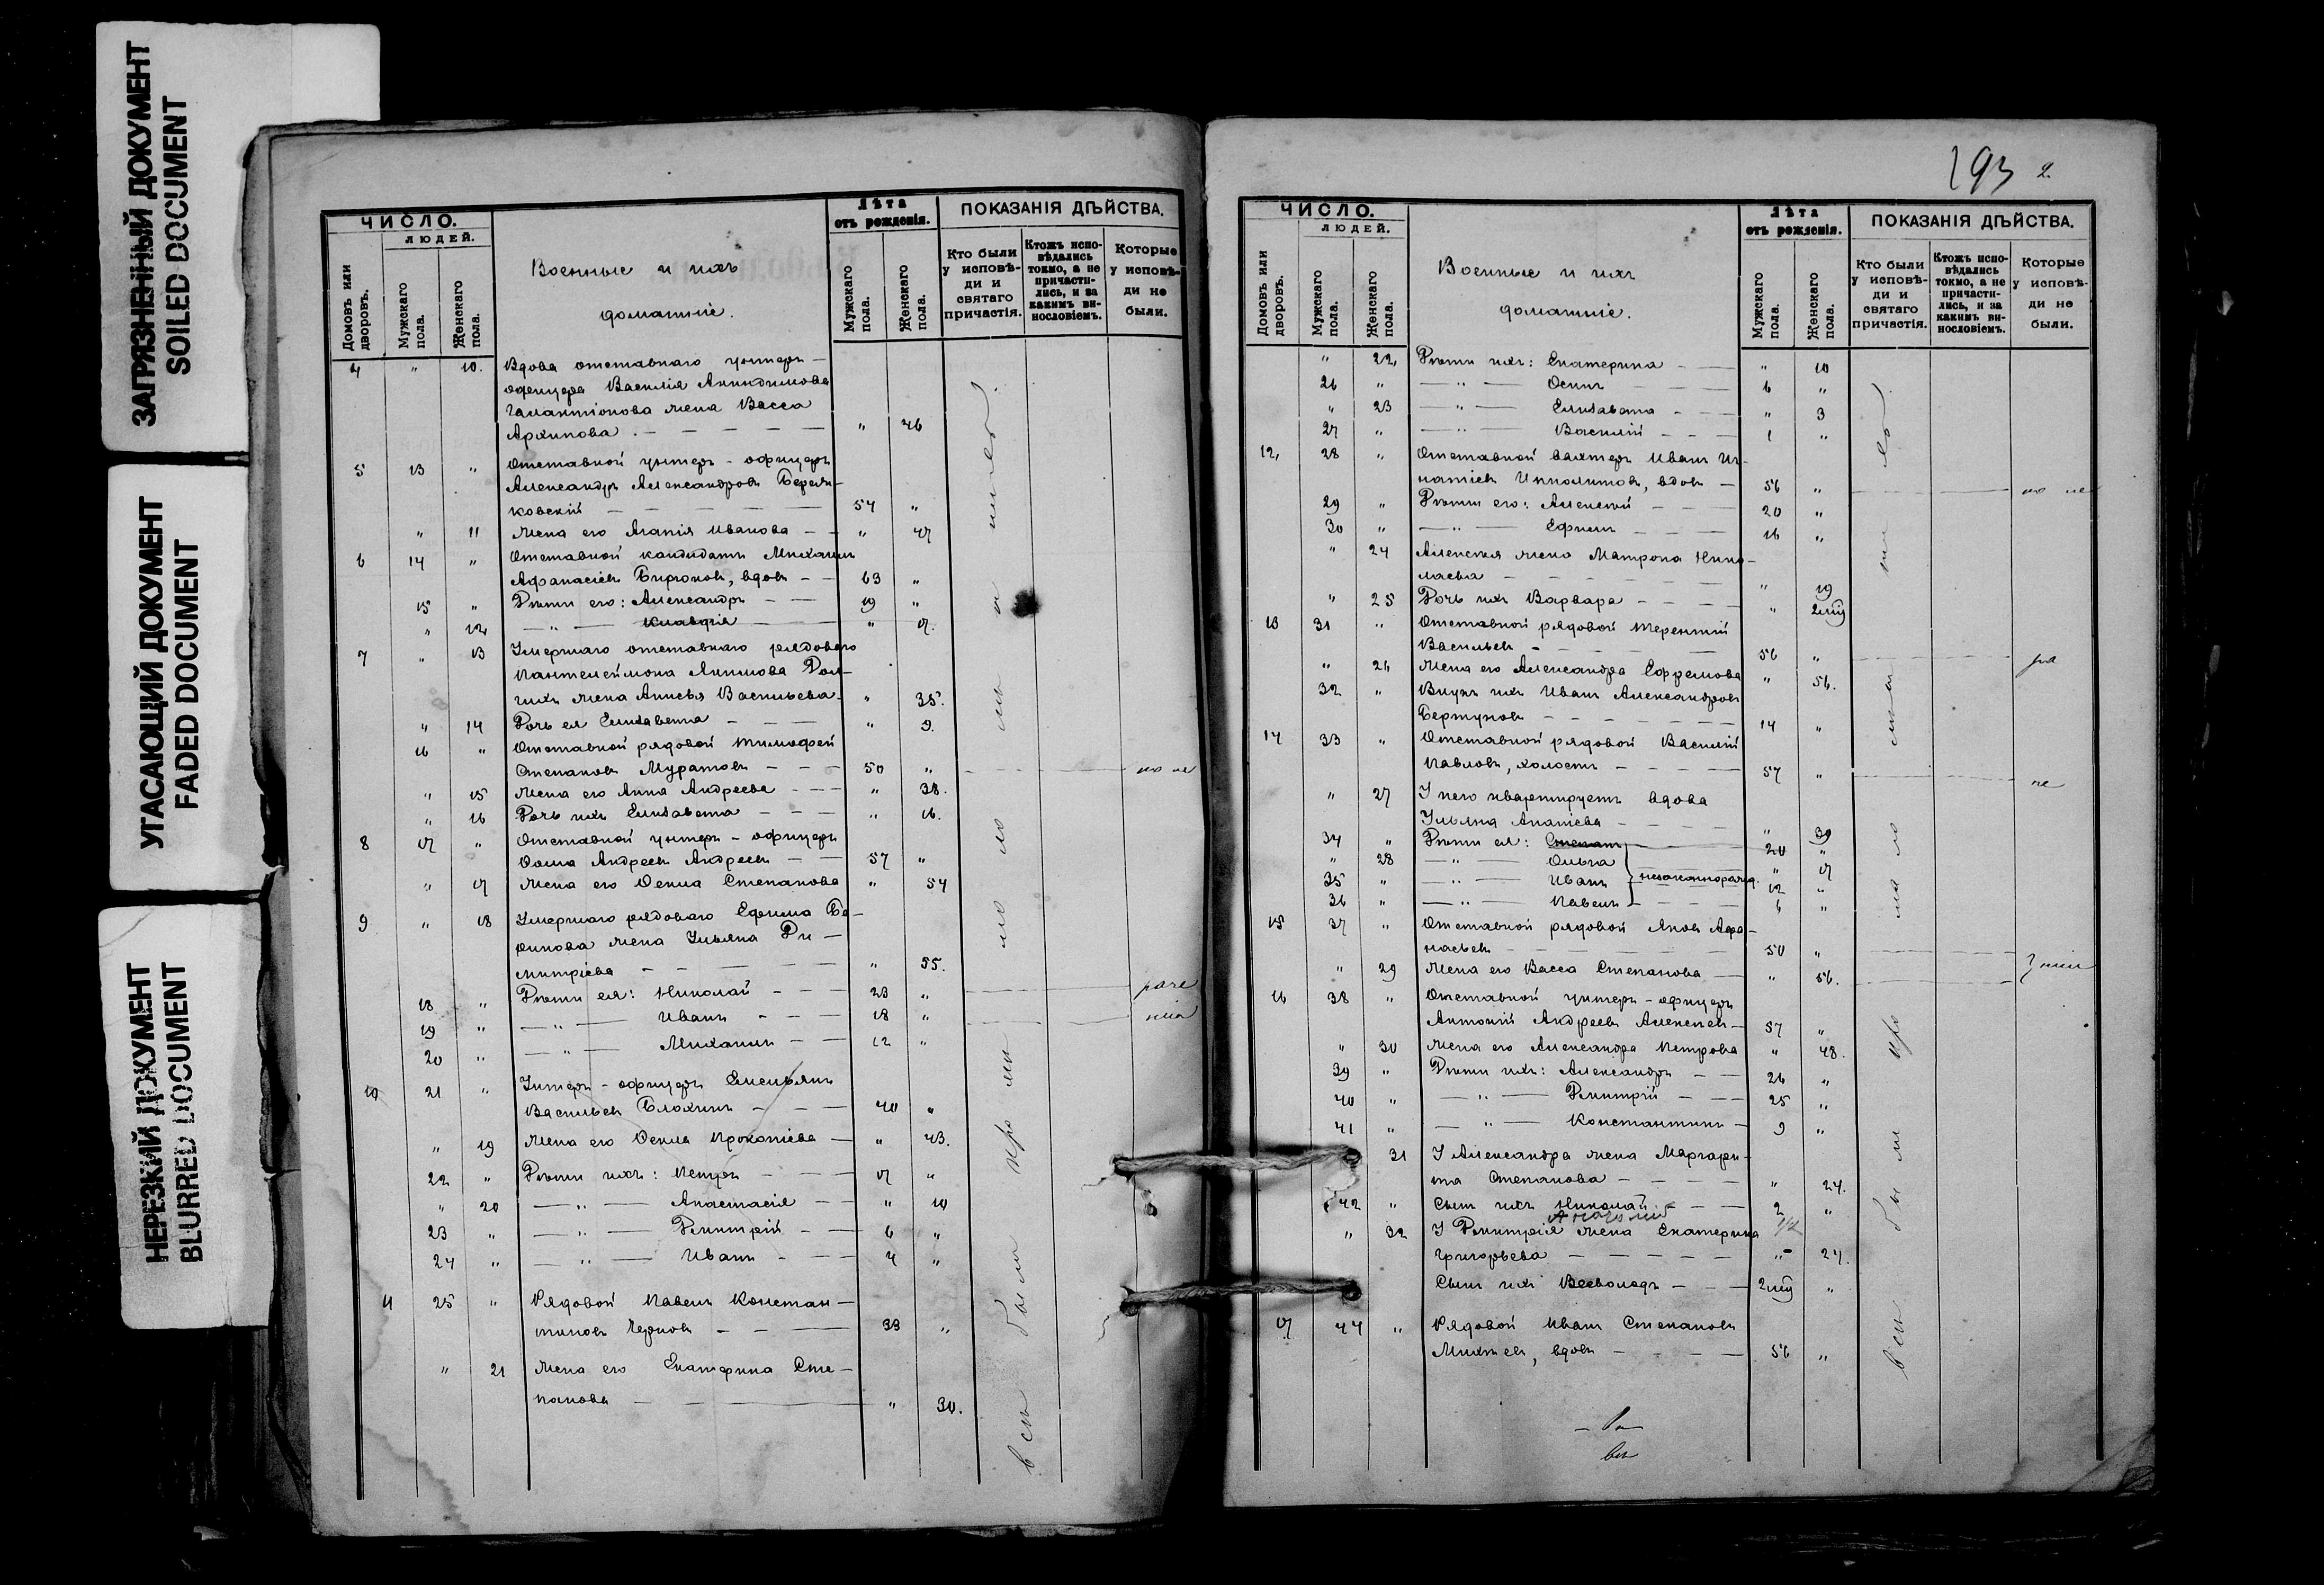 ЗАГРЯЗНЕННЫЙ ДОКУМЕНТ
SOILED DOCUMENT
УГАСАЮЩИЙ ДОКУМЕНТ
FADED DOCUMENT
НЕРЕЗКИЙ ДОКУМЕНТ
BLURRED DOCUMENT
ЧИСЛО.
ЛЮДЕЙ.
Домовъ или дворовъ.
Мужскаго пола.
Женскаго пола.
Военные и ихъ
домашніе.
Лѣта
отъ рожденія.
Мужскаго пола.
Женскаго пола.
ПОКАЗАНІЯ ДѢЙСТВА.
Кто были у исповѣ-ди и святаго причастія.
Ктожъ испо-вѣдались токмо, а не причасти-лись, и за какимъ ви-нословіемъ.
Которые у исповѣ-ди не были.
4 " 10. Вдова отставнаго унтеръ-
офицера Василія
жена Васса
Архипова. " 46
5 13 " Отставной унтеръ-офицеръ
Александръ Александровъ
ковскій 54 "
" 11 Жена его Агапія Иванова " 47
6 14 " Отставной кандидатъ Михаилъ
Афанасіевъ Бирюковъ, вдовъ 63 "
15 " Дѣти его: Александръ 19 "
" 12 — " — Клавдія " 17.
7 " 13 Умершаго отставнаго рядоваго
Пантелеймона Акимова
жена Анисья Васильева " 35.
" 14 Дочь ея Елизавета " 9.
16 " Отставной рядовой Тимофей
Степановъ Муратовъ 50 "
" 15 Жена его Анна Андреева " 38.
" 16 Дочь ихъ Елизавета " 16.
8 17 " Отставной унтеръ-офицеръ
Ѳома Андреевъ Андреевъ 57 "
" 17 Жена его Ѳекла Степанова " 54
9 " 18 Умершаго рядоваго Ефима
жена Ульяна Ди-
митріева " 55.
18 " Дѣти ея: Николай 23 "
19 " — " — Иванъ 18 "
20 " — " — Михаилъ 12 "
10 21 " Унтеръ-офицеръ Емельянъ
Васильевъ Блохинъ 40 "
" 19 Жена его Ѳекла Прокопіева " 43.
22 " Дѣти ихъ: Петръ 17 "
" 20 — " — Анастасія " 10
23 " — " — Димитрій 6 "
24 " — " — Иванъ 4 "
11 25 " Рядовой Павелъ Констан-
тиновъ Черновъ 33 "
" 21 Жена его Екатерина Сте-
панова " 30.
193 2.
ЧИСЛО.
ЛЮДЕЙ.
Домовъ или дворовъ.
Мужскаго пола.
Женскаго пола.
Военные и ихъ
домашніе.
Лѣта
отъ рожденія.
Мужскаго пола.
Женскаго пола.
ПОКАЗАНІЯ ДѢЙСТВА.
Кто были у исповѣ-ди и святаго причастія.
Ктожъ испо-вѣдались токмо, а не причасти-лись, и за какимъ ви-нословіемъ.
Которые у исповѣ-ди не были.
" 22, Дѣти ихъ: Екатерина " 10
26 " — " — Осипъ 6 "
" 23 — " — Елизавета " 3
27 " — " — Василій 1 "
12, 28 " Отставной вахтеръ Иванъ Иг-
натіевъ Ипполитовъ, вдовъ 56 "
29 " Дѣти его: Алексѣй 20 "
30 " — " — Ефимъ 16 "
" 24 Алексѣя жена Матрона Нико-
лаева " 19
" 25 Дочь ихъ Варвара "
13 31 " Отставной рядовой Терентій
Васильевъ 56 "
" 26 Жена его Александра Ефремова " 56.
32 " Внукъ ихъ Иванъ Александровъ
14 "
14 33 " Отставной рядовой Василій
Павловъ, холостъ 57 "
" 27 У него квартируетъ вдова
Ульяна Анатіева " 39
34 " Дѣти ея: Степанъ 20 "
" 28 — " — Ольга " 17
35 " — " — Иванъ незаконнорожд. 12 "
36 " — " — Павелъ 6 "
15 37 " Отставной рядовой Яковъ Афа-
насьевъ 50 "
" 29 Жена его Васса Степанова " 56.
16 38 " Отставной унтеръ-офицеръ
Антоній Андреевъ Алексѣев 57 "
" 30 Жена его Александра Петрова " 48.
39 " Дѣти ихъ: Александръ 26 "
40 " — " — Димитрій 25 "
41 " — " — Константинъ 9 "
" 31 У Александра жена Маргари-
та Степанова " 24.
42 " Сынъ ихъ Николай 2 "
Анатолій 1/2
" 32 У Димитрія жена Екатерина
Григорьева " 24.
Сынъ ихъ Всеволодъ "
17 44 " Рядовой Иванъ Степановъ
Михѣевъ, вдовъ 56 "